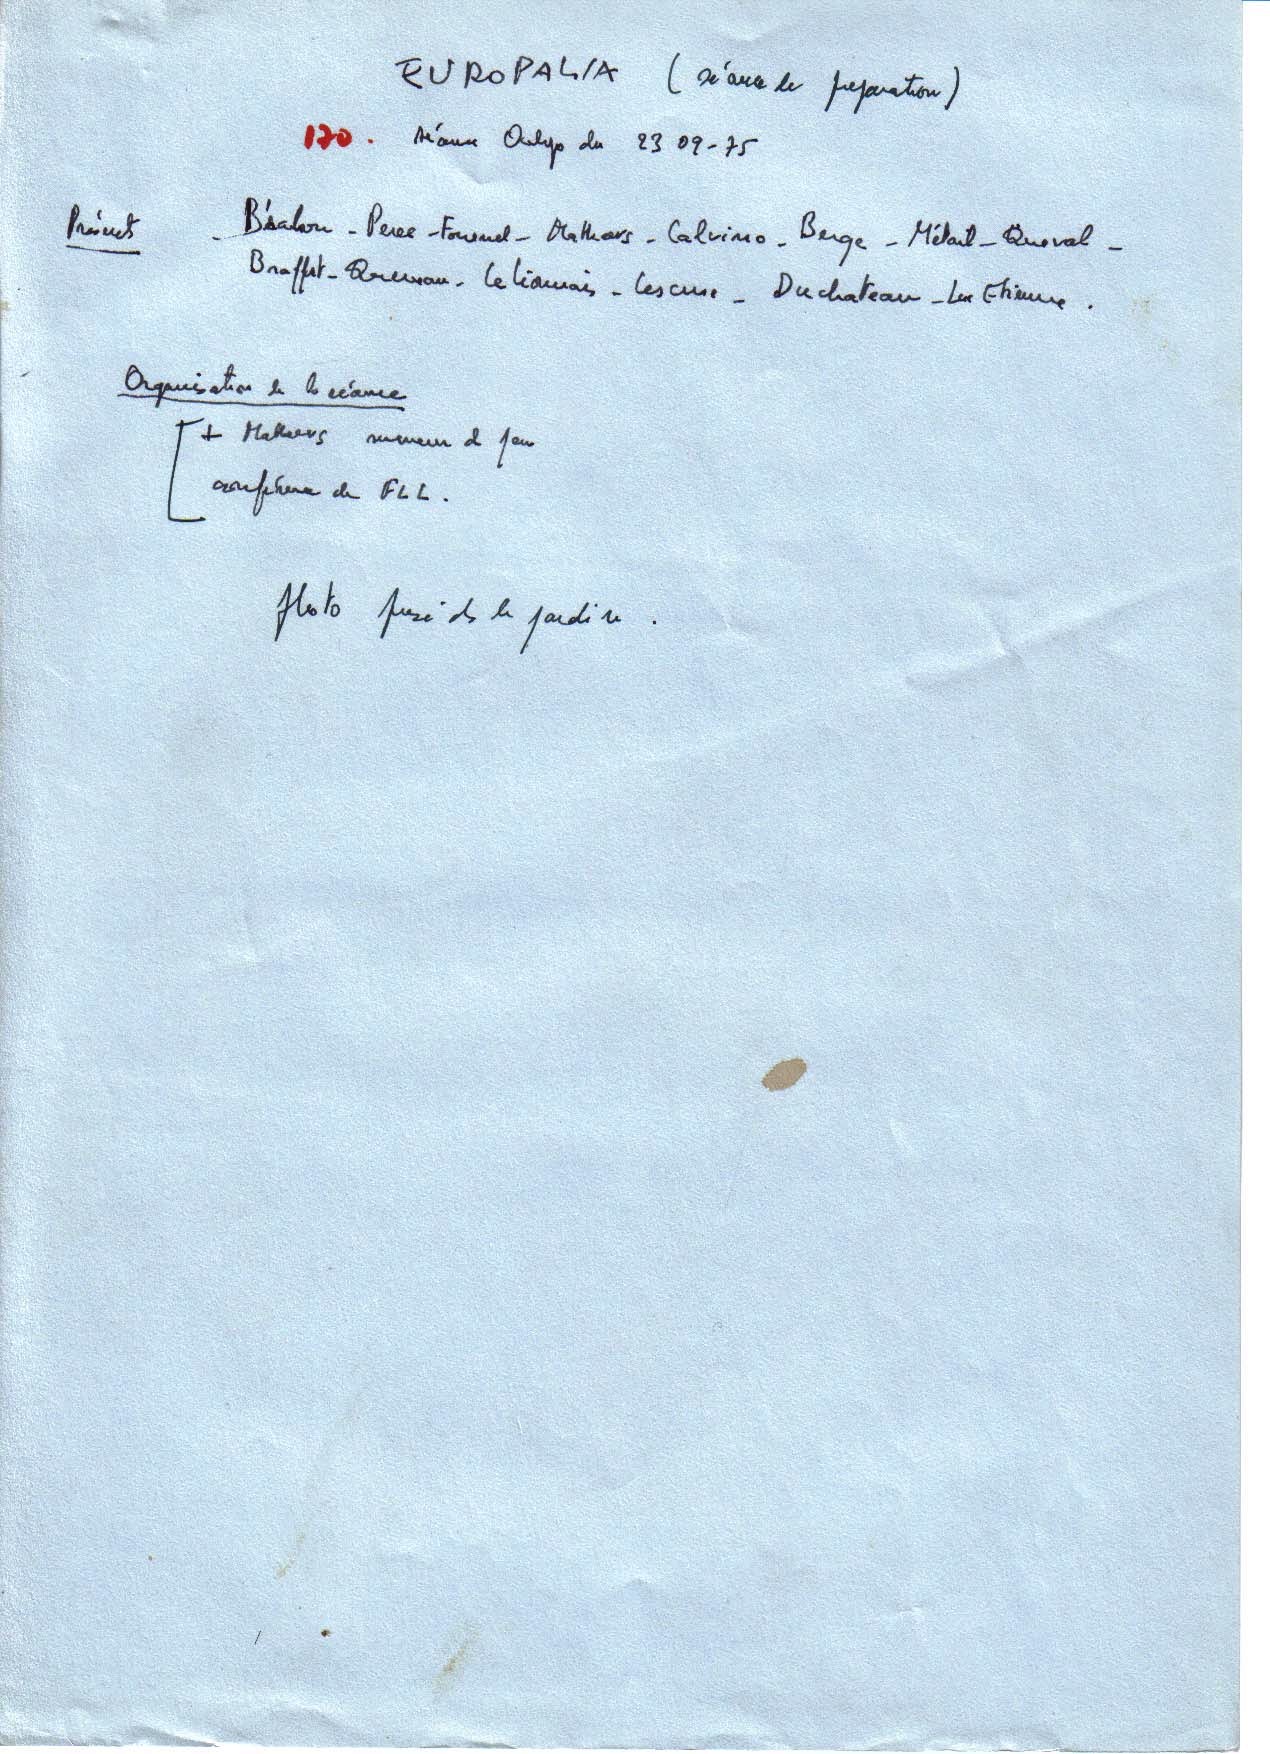 EUROPALIA (séance de préparation)
170. séance Oulipo du 23 09-75
Présents - Bénabou - Perec - Fournel - Mathews - Calvino - Berge - Métail - Queval -
Braffort - Queneau - Le Lionnais - Lescure - Duchateau - Luc Etienne.
Organisation de la séance
+ Mathews meneur de jeu
conférence de FLL.
photo prise ds le jardin.